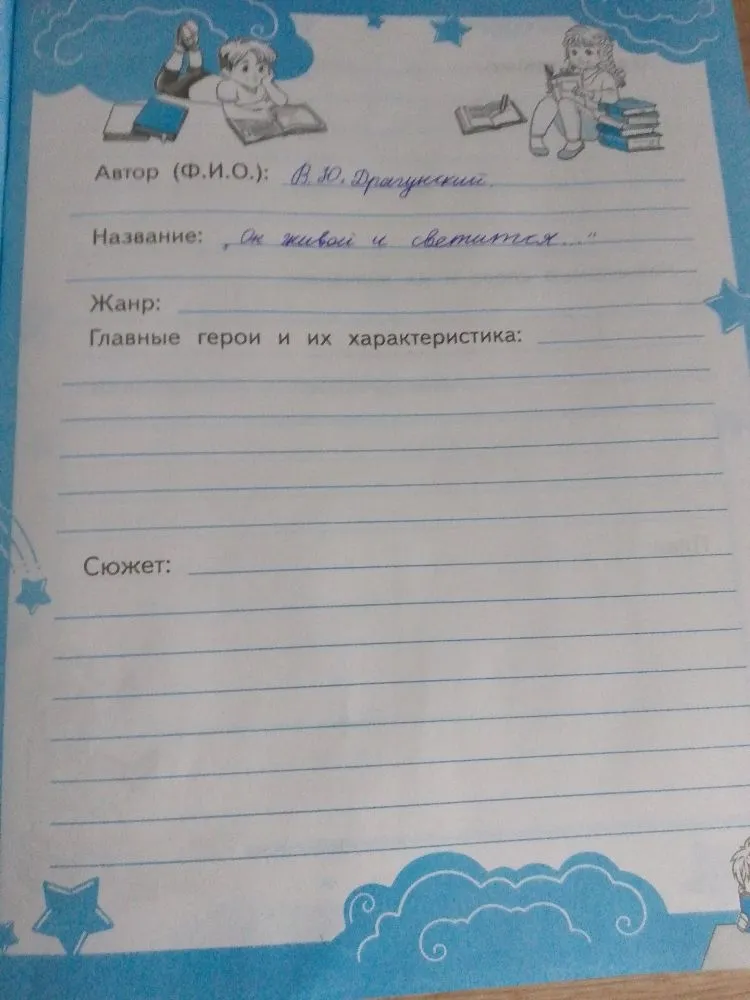 Автор (Ф.И.О.): В.Ю. Драгунский.
Название: „Он живой и светится..."
Жанр:
Главные герои и их характеристика:
Сюжет: